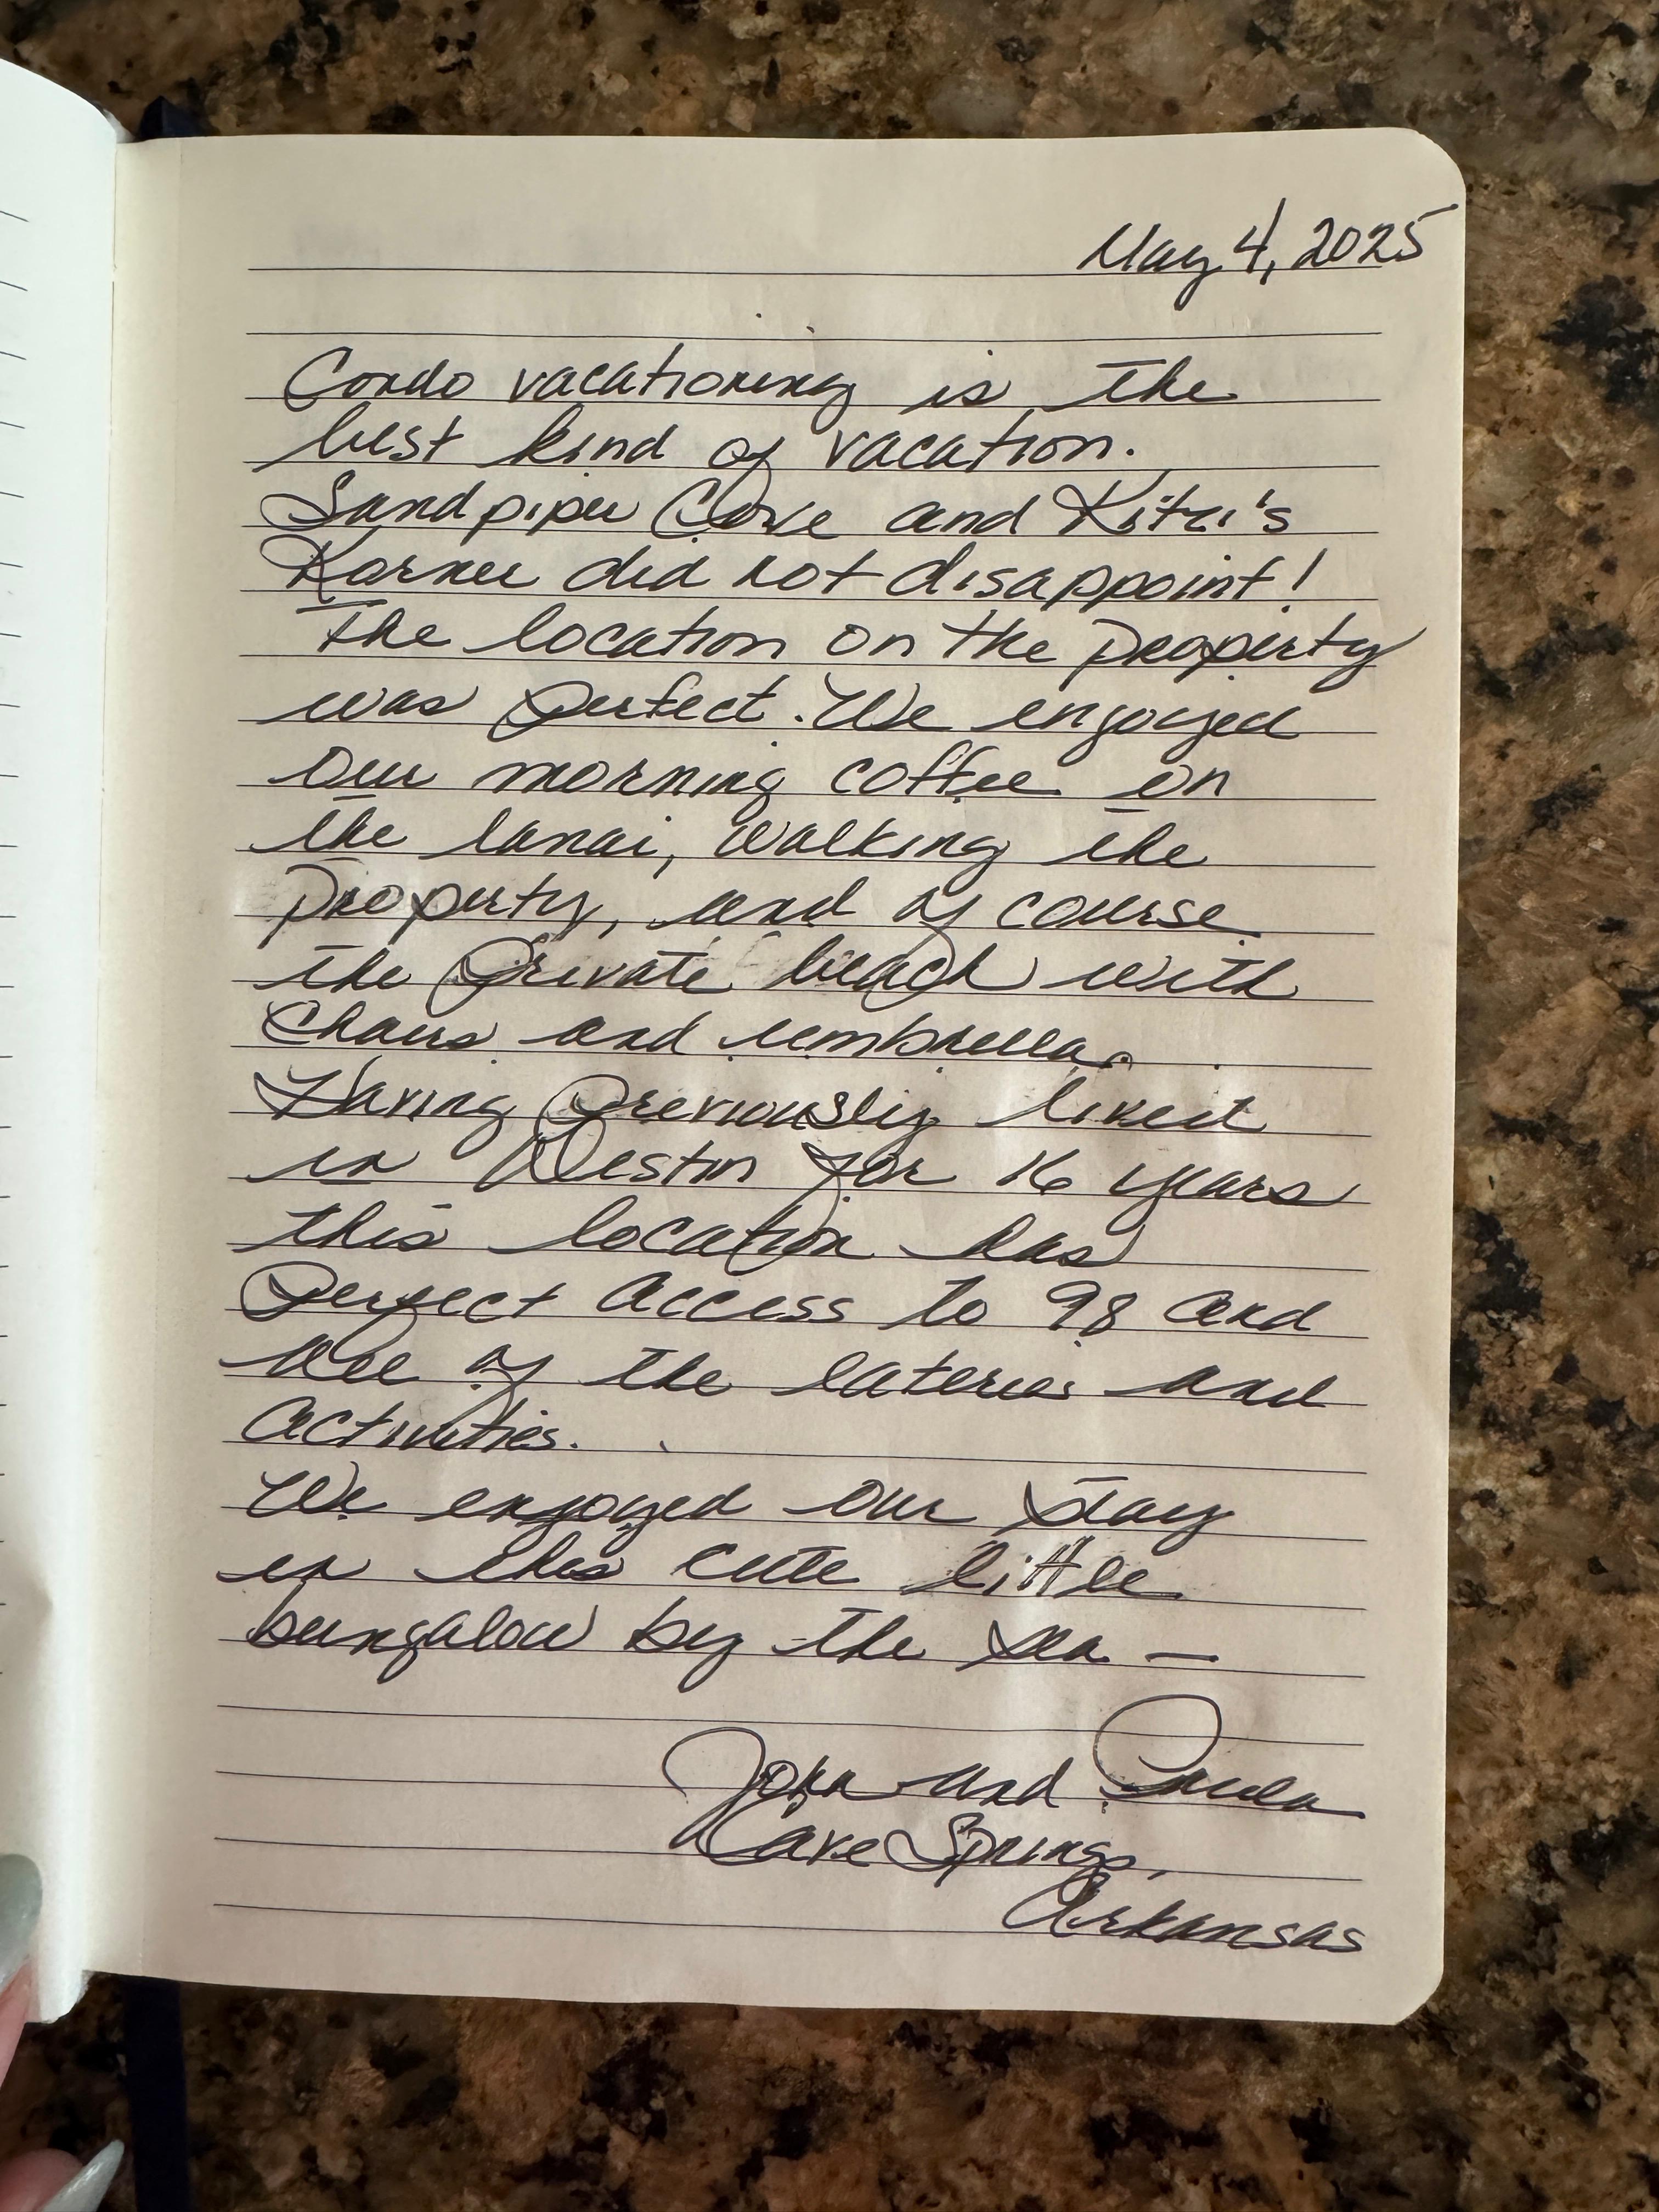 May 4, 2025
Condo vacationing is the
best kind of vacation.
Sandpiper Cove and Kitzi's
Korner did not disappoint!
The location on the property
was perfect. We enjoyed
our morning coffee on
the lanai, walking the
property, and of course
the private beach with
chairs and umbrella.
Having previously lived
in Destin for 16 years
this location has
perfect access to 98 and
all of the eateries and
activities.
We enjoyed our stay
in this cute little
bungalow by the sea —
John and Paula
Cave Springs,
Arkansas